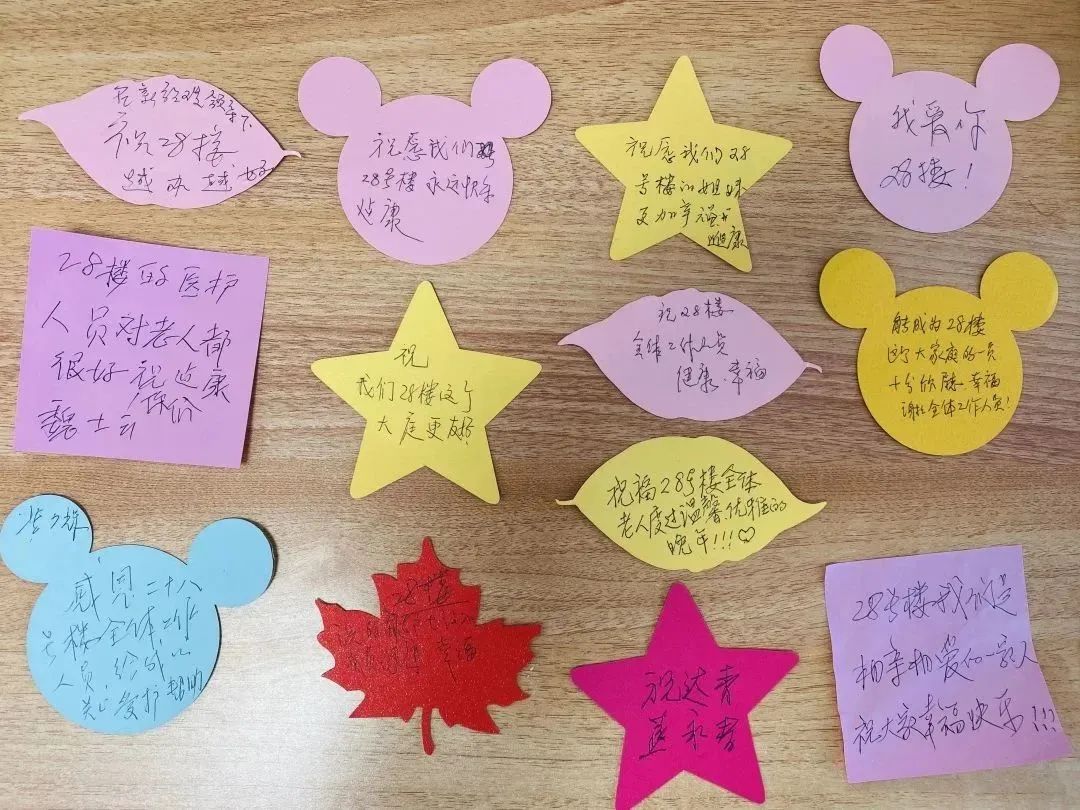 祝28楼
越办越好
祝愿我们
28号楼永远快乐
健康
祝愿我们28
号楼的姐妹
更加幸福
健康
我爱你
28楼!
28楼的医护
人员对老人都
很好,祝健康
保价
祝
我们28楼这个
大庭更友好
祝28楼
全体工作人员
健康.幸福
能成为28楼
这个大家庭的一员
十分欣慰.幸福
谢谢全体工作人员!
祝福28号楼全体
老人度过温馨优雅的
晚年!!!
感恩二十八
号楼全体工作
人员给我以
关心爱护帮助
28楼
幸福
祝达青
蓝永春
28号楼我们是
相亲相爱的一家人
祝大家幸福快乐!!!